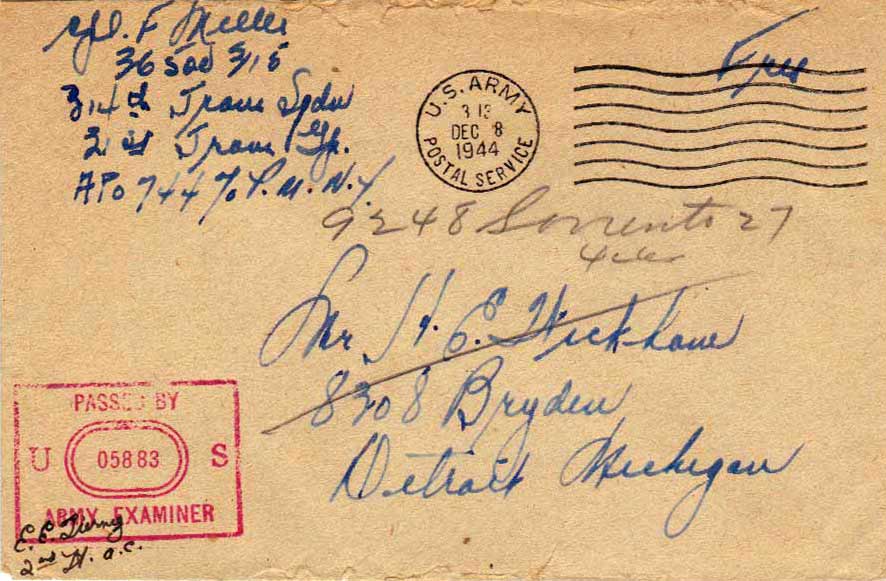 Cpl. F Miller
36 500 315
314th Trans Sqdn
21st Trans Gp.
APO 744 % P.M. N.Y.
Free
U.S. ARMY
3 13
DEC 8
1944
POSTAL SERVICE
9248 Sorrento 27
Mr H. E. Wickham
8308 Bryden
Detroit Michigan
PASSED BY
U 05883 S
ARMY EXAMINER
E. E. Tierney
2nd Lt. A.C.